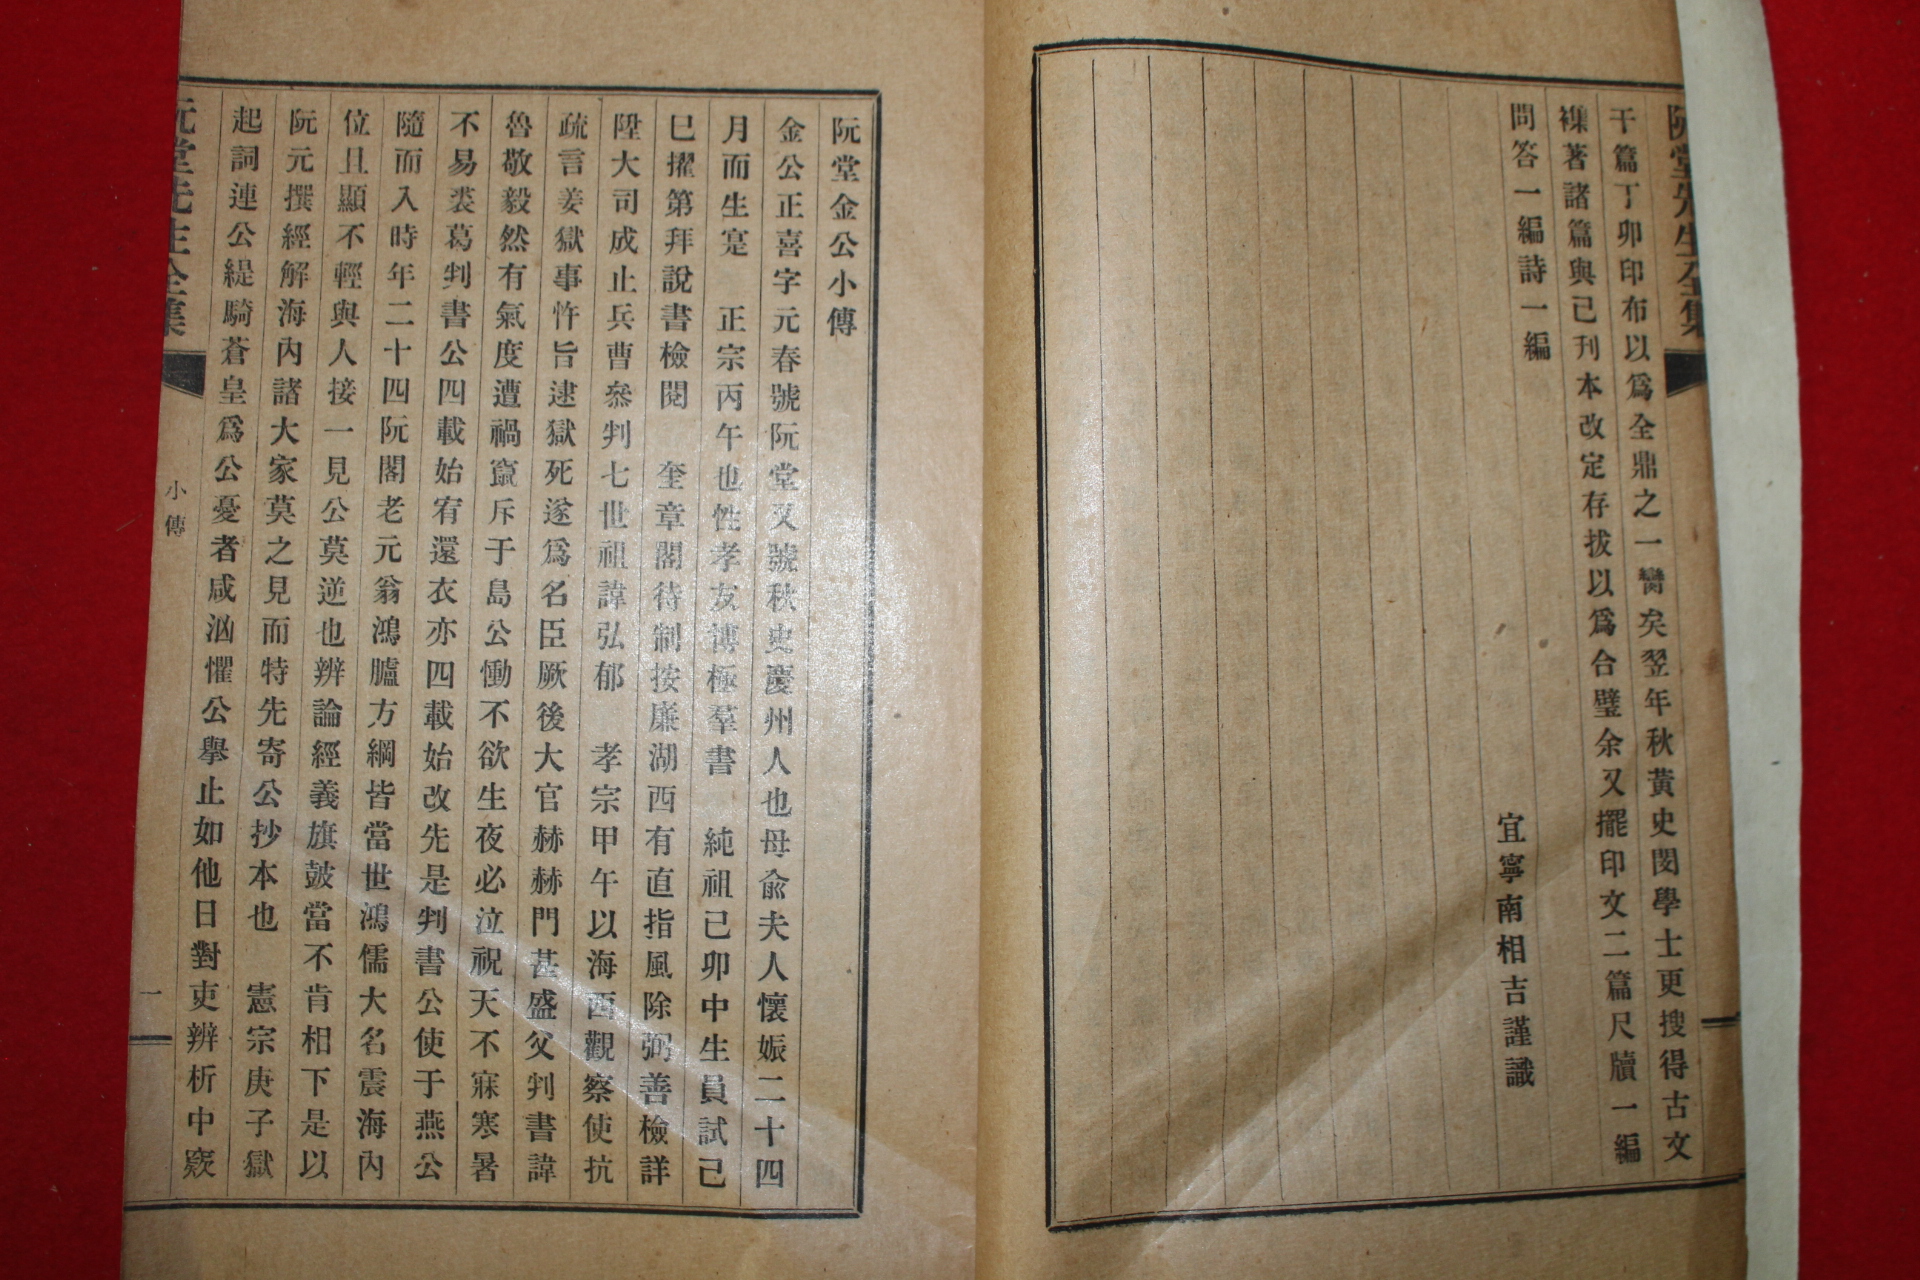 阮堂先生全集
干篇丁卯印布以爲全鼎之一臠矣翌年秋黃史閔學士更搜得古文
襍著諸篇與已刊本改定存拔以爲合璧余又擺印文二篇尺牘一編
問答一編詩一編
宜寧南相吉謹識
阮堂金公小傳
金公正喜字元春號阮堂又號秋史慶州人也母兪夫人懷娠二十四
月而生寔 正宗丙午也性孝友博極羣書 純祖己卯中生員試己
巳擢第拜說書檢閱 奎章閣待制按廉湖西有直指風除弼善檢詳
陞大司成止兵曹叅判七世祖諱弘郁 孝宗甲午以海西觀察使抗
疏言姜獄事忤旨逮獄死遂爲名臣厥後大官赫赫門甚盛父判書諱
魯敬毅然有氣度遭禍竄斥于島公慟不欲生夜必泣祝天不寐寒暑
不易裘葛判書公四載始宥還衣亦四載始改先是判書公使于燕公
隨而入時年二十四阮閣老元翁鴻臚方綱皆當世鴻儒大名震海內
位且顯不輕與人接一見公莫逆也辨論經義旗鼓當不肯相下是以
阮元撰經解海內諸大家莫之見而特先寄公抄本也 憲宗庚子獄
起詞連公緹騎蒼皇爲公憂者咸洶懼公擧止如他日對吏辨析中窾
阮堂先生全集
小傳
一